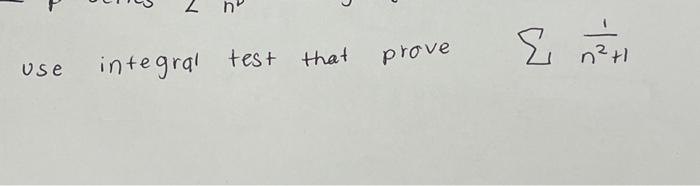 use integral test that prove ∑ 1/(n²+1)